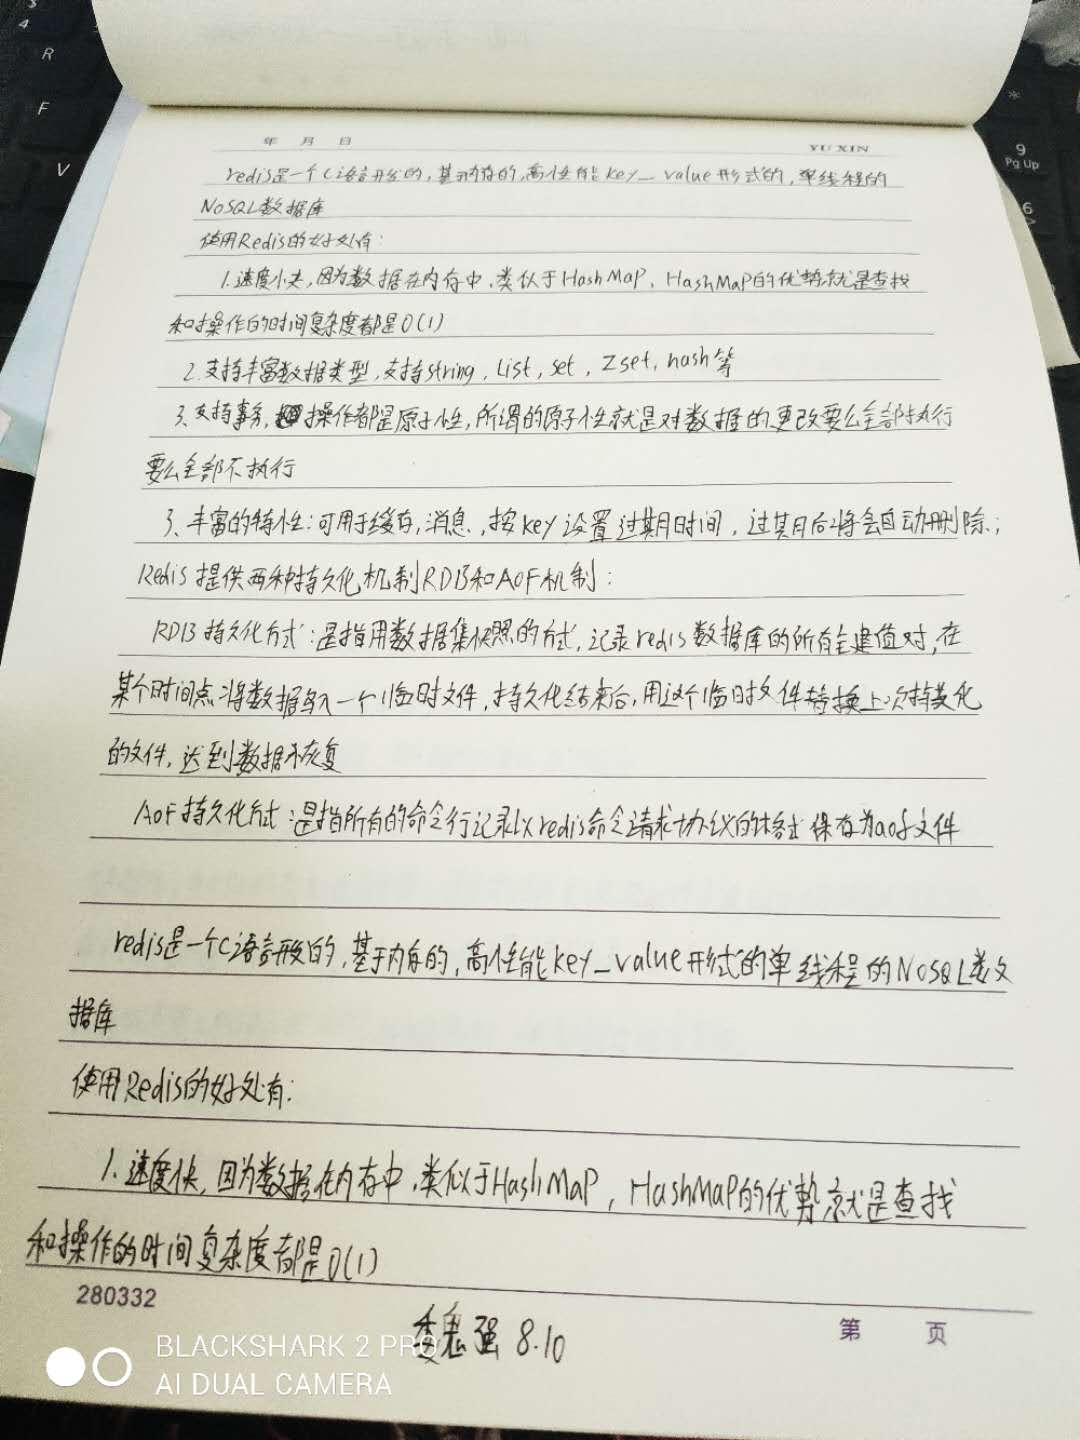 年 月 日
YU XIN
redis是一个C语言开发的,基于内存的,高性能key_value形式的,单线程的
NoSQL数据库
使用Redis的好处有:
1.速度快,因为数据在内存中,类似于HashMap,HashMap的优势就是查找
和操作的时间复杂度都是O(1)
2.支持丰富数据类型,支持string,List,set,Zset,hash等
3.支持事务,操作都是原子性,所谓的原子性就是对数据的更改要么全部执行
要么全部不执行
3、丰富的特性:可用于缓存,消息,按key设置过期时间,过期后将会自动删除;
Redis提供两种持久化机制RDB和AOF机制:
RDB持久化方式:是指用数据集快照的方式,记录redis数据库的所有键值对,在
某个时间点将数据写入一个临时文件,持久化结束后,用这个临时文件替换上次持久化
的文件,达到数据恢复
AOF持久化方式:是指所有的命令行记录以redis命令请求协议的格式保存为aof文件
redis是一个C语言开发的,基于内存的,高性能key_value形式的单线程的NOSQL数
据库
使用Redis的好处有:
1.速度快,因为数据在内存中,类似于HashMap,HashMap的优势就是查找
和操作的时间复杂度都是O(1)
280332
魏强 8.10
第 页
BLACKSHARK 2 PRO
AI DUAL CAMERA
R
F
V
9
Pg Up
6